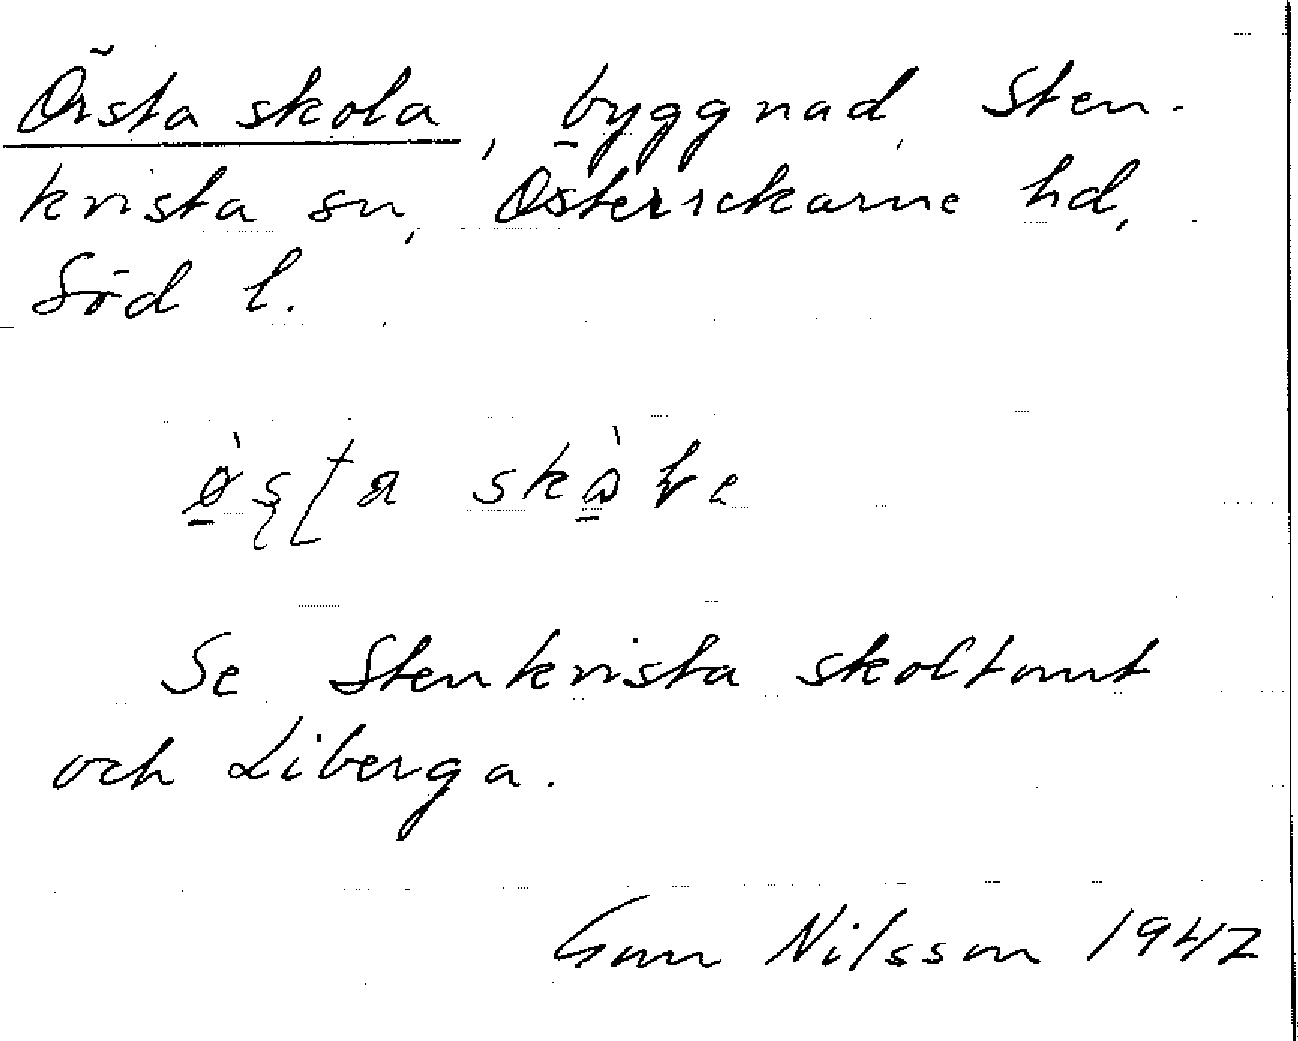 Örsta skola, byggnad, Sten-
kvista sn, Österrekarne hd,
Söd l.
Se Stenkvista skoltomt
och Liberga.
Gun Nilsson 1947